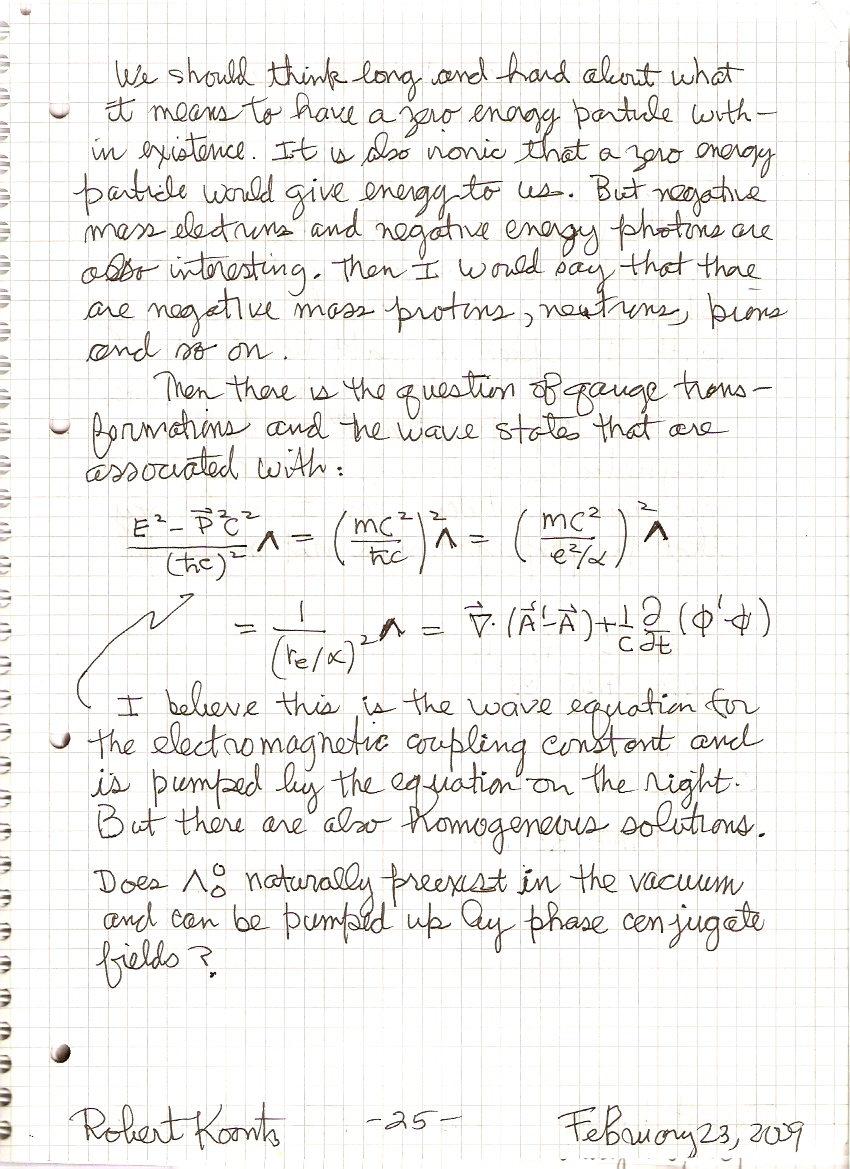 We should think long and hard about what
it means to have a zero energy particle with-
in existence. It is also ironic that a zero energy
particle would give energy to us. But negative
mass electrons and negative energy photons are
also interesting. Then I would say that there
are negative mass protons, neutrons, pions
and so on.
Then there is the question of gauge trans-
formations and the wave states that are
associated with:
(E² - P⃗²C²)/(ħc)² Λ = (mc²/ħc)² Λ = (mc²/(e²/α))² Λ
= 1/(re/α)² Λ = ∇⃗·(A⃗'-A⃗) + 1/c ∂/∂t (φ'-φ)
I believe this is the wave equation for
the electromagnetic coupling constant and
is pumped by the equation on the right.
But there are also homogeneous solutions.
Does Λ⁰₀ naturally preexist in the vacuum
and can be pumped up by phase conjugate
fields?
Robert Koontz -25- February 23, 2009